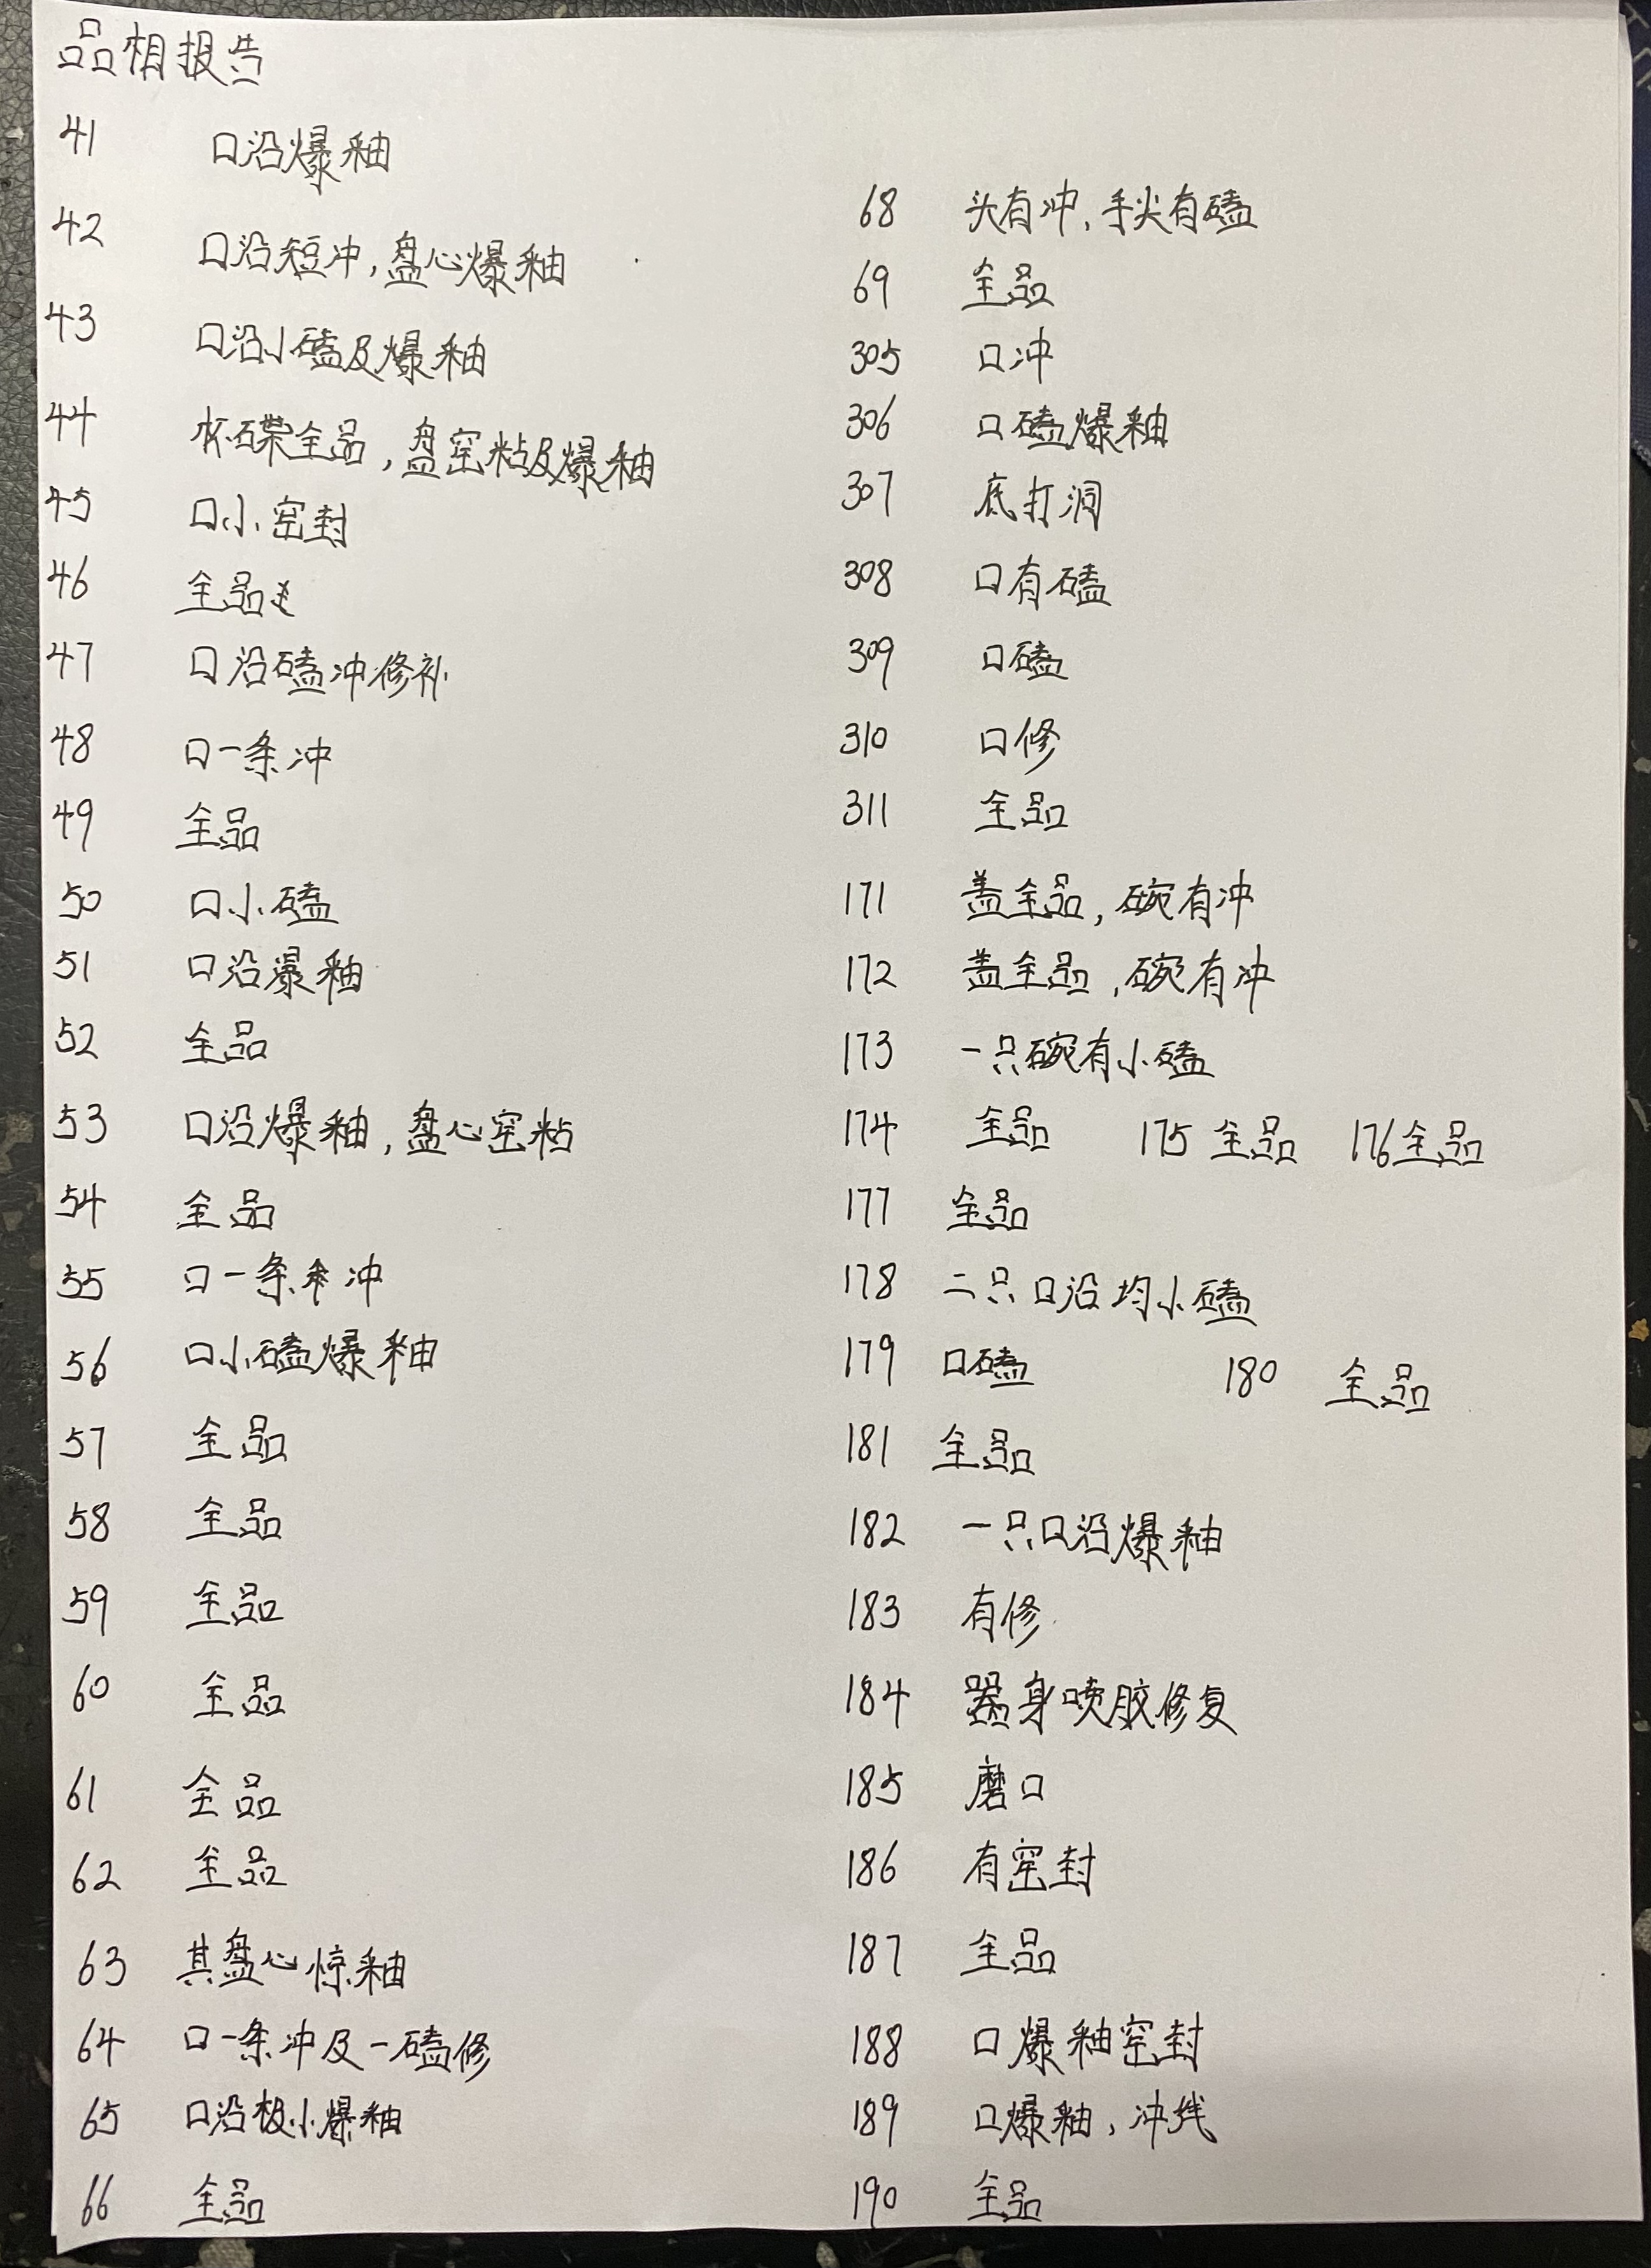 品相报告
41 口沿爆釉
42 口沿短冲,盘心爆釉
43 口沿小磕及爆釉
44 杯碟全品,盘窑粘及爆釉
45 口小窑封
46 全品
47 口沿磕冲修补
48 口一条冲
49 全品
50 口小磕
51 口沿瀑釉
52 全品
53 口沿爆釉,盘心窑粘
54 全品
55 口一条冲
56 口小磕爆釉
57 全品
58 全品
59 全品
60 全品
61 全品
62 全品
63 其盘心惊釉
64 口一条冲及一磕修
65 口沿极小爆釉
66 全品
68 头有冲,手尖有磕
69 全品
305 口冲
306 口磕爆釉
307 底打洞
308 口有磕
309 口磕
310 口修
311 全品
171 盖全品,碗有冲
172 盖全品,碗有冲
173 一只碗有小磕
174 全品 175 全品 176 全品
177 全品
178 二只口沿均小磕
179 口磕 180 全品
181 全品
182 一只口沿爆釉
183 有修
184 器身喷胶修复
185 磨口
186 有窑封
187 全品
188 口爆釉窑封
189 口爆釉,冲线
190 全品